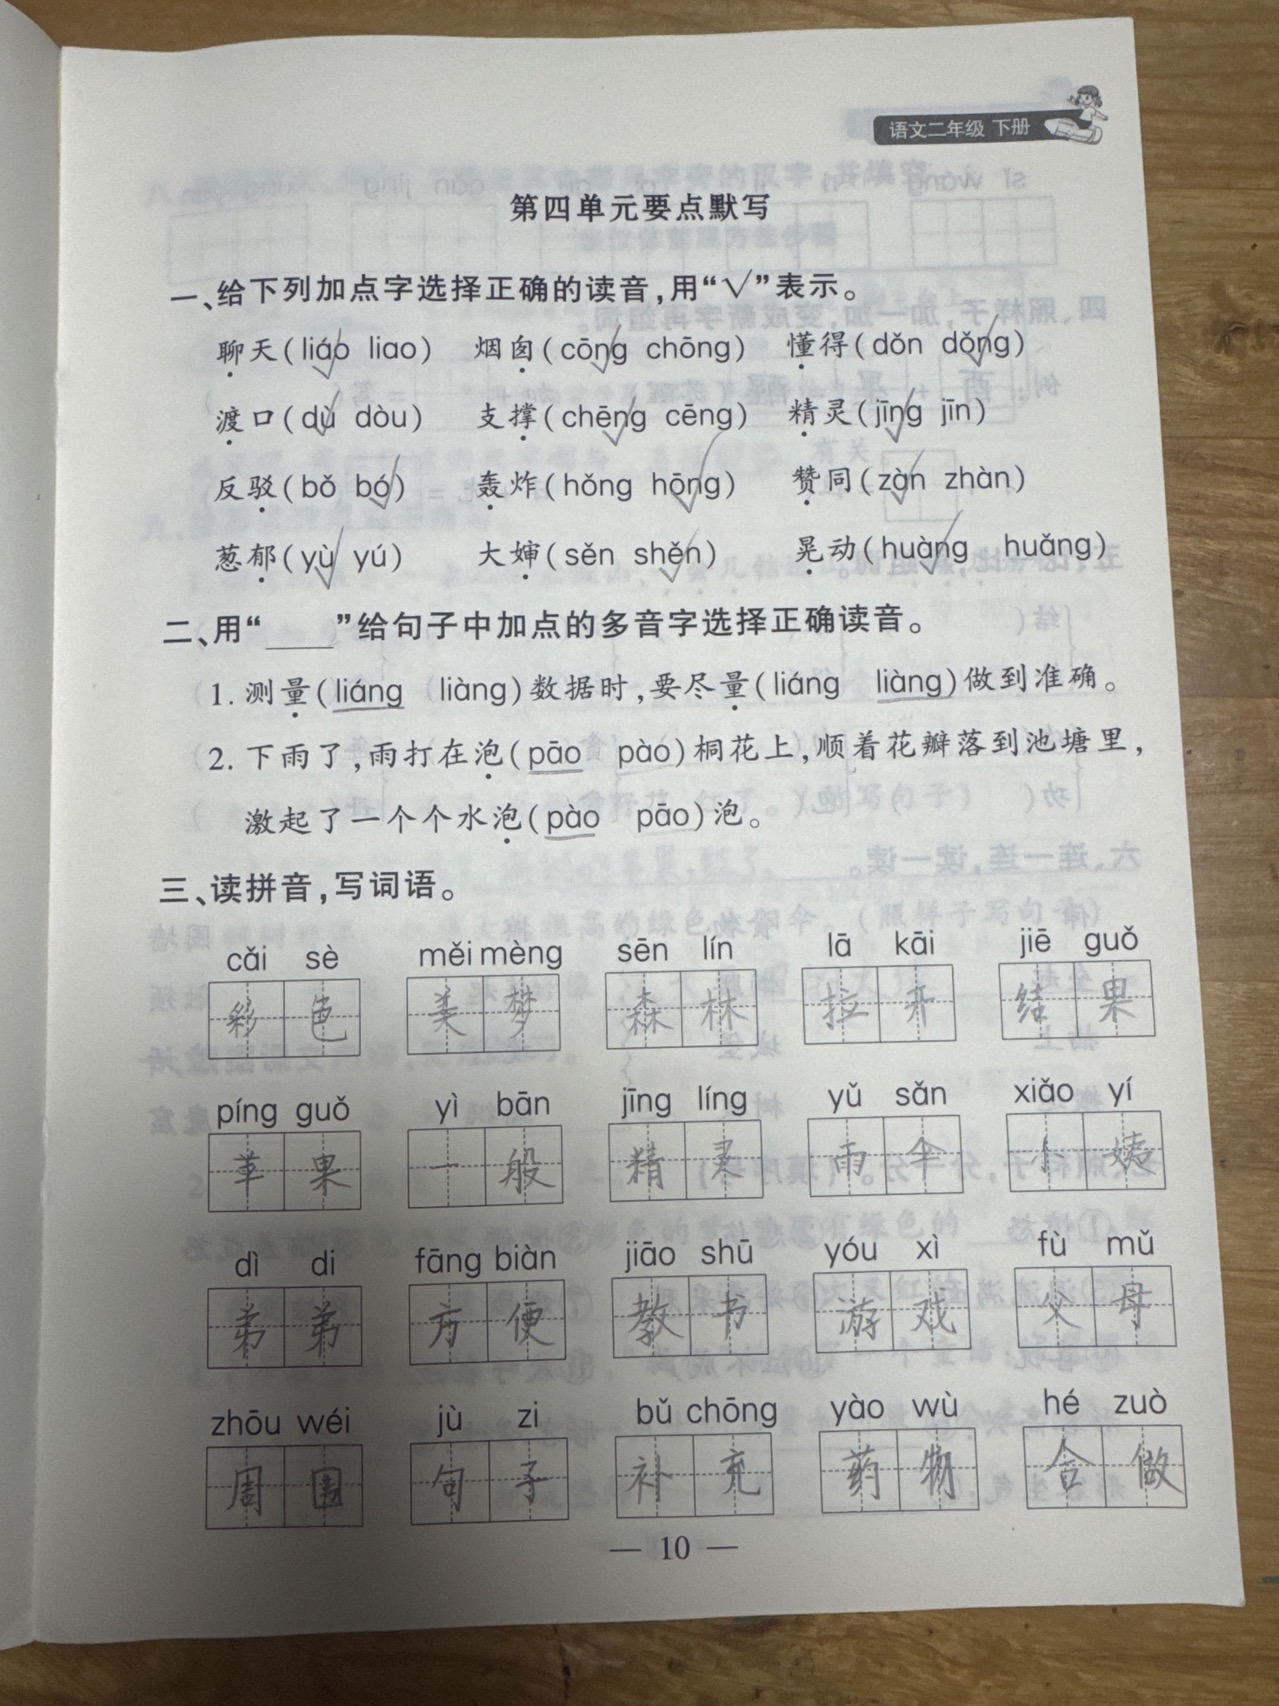 语文二年级 下册
第四单元要点默写
一、给下列加点字选择正确的读音，用“√”表示。
聊天(liáo√ liao) 烟囱(cōng√ chōng) 懂得(dǒn dǒng√)
渡口(dù√ dòu) 支撑(chēng√ cēng) 精灵(jīng√ jīn)
反驳(bǒ bó√) 轰炸(hǒng hōng√) 赞同(zàn√ zhàn)
葱郁(yù√ yú) 大婶(sěn shěn√) 晃动(huàng√ huǎng)
二、用“____”给句子中加点的多音字选择正确读音。
1. 测量(liáng liàng)数据时，要尽量(liáng liàng)做到准确。
2. 下雨了，雨打在泡(pāo pào)桐花上，顺着花瓣落到池塘里，
激起了一个个水泡(pào pāo)泡。
三、读拼音，写词语。
cǎi sè měi mèng sēn lín lā kāi jiē guǒ
彩色 美梦 森林 拉开 结果
píng guǒ yì bān jīng líng yǔ sǎn xiǎo yí
苹果 一般 精灵 雨伞 小姨
dì di fāng biàn jiāo shū yóu xì fù mǔ
弟弟 方便 教书 游戏 父母
zhōu wéi jù zi bǔ chōng yào wù hé zuò
周围 句子 补充 药物 合做
— 10 —